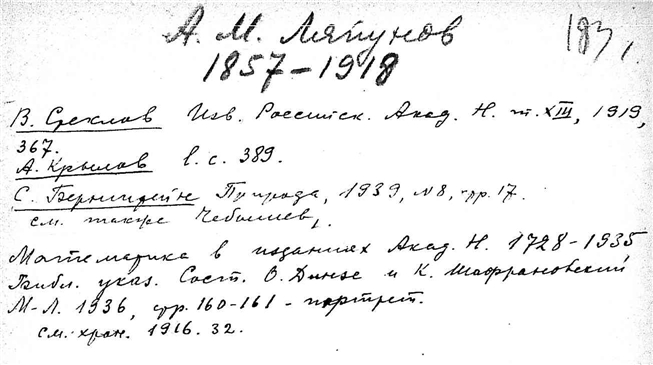 А. М. Ляпунов
183,
1857–1918
В. Стеклов Изв. Российск. Акад. Н. т. XIII, 1919,
367.
А. Крылов l. c. 389.
С. Бернштейн Природа, 1939, N8, стр. 17.
см. также Чебышев,
Математика в изданиях Акад. Н. 1728–1935
Библ. указ. Сост. О. Динзе и К. Шафрановский
М–Л. 1936, стр. 160–161 – портрет.
см. хрон. 1916. 32.